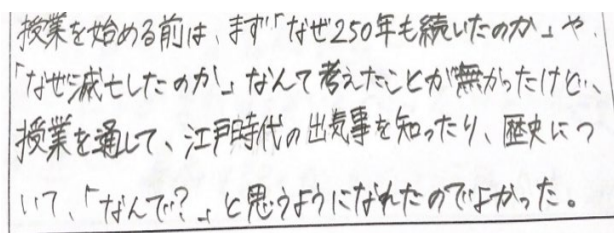 授業を始める前は、まず「なぜ250年も続いたのか」や、
「なぜ滅亡したのか」なんて考えたことが無かったけど、
授業を通して、江戸時代の出来事を知ったり、歴史につ
いて、「なんで？」と思うようになれたのでよかった。